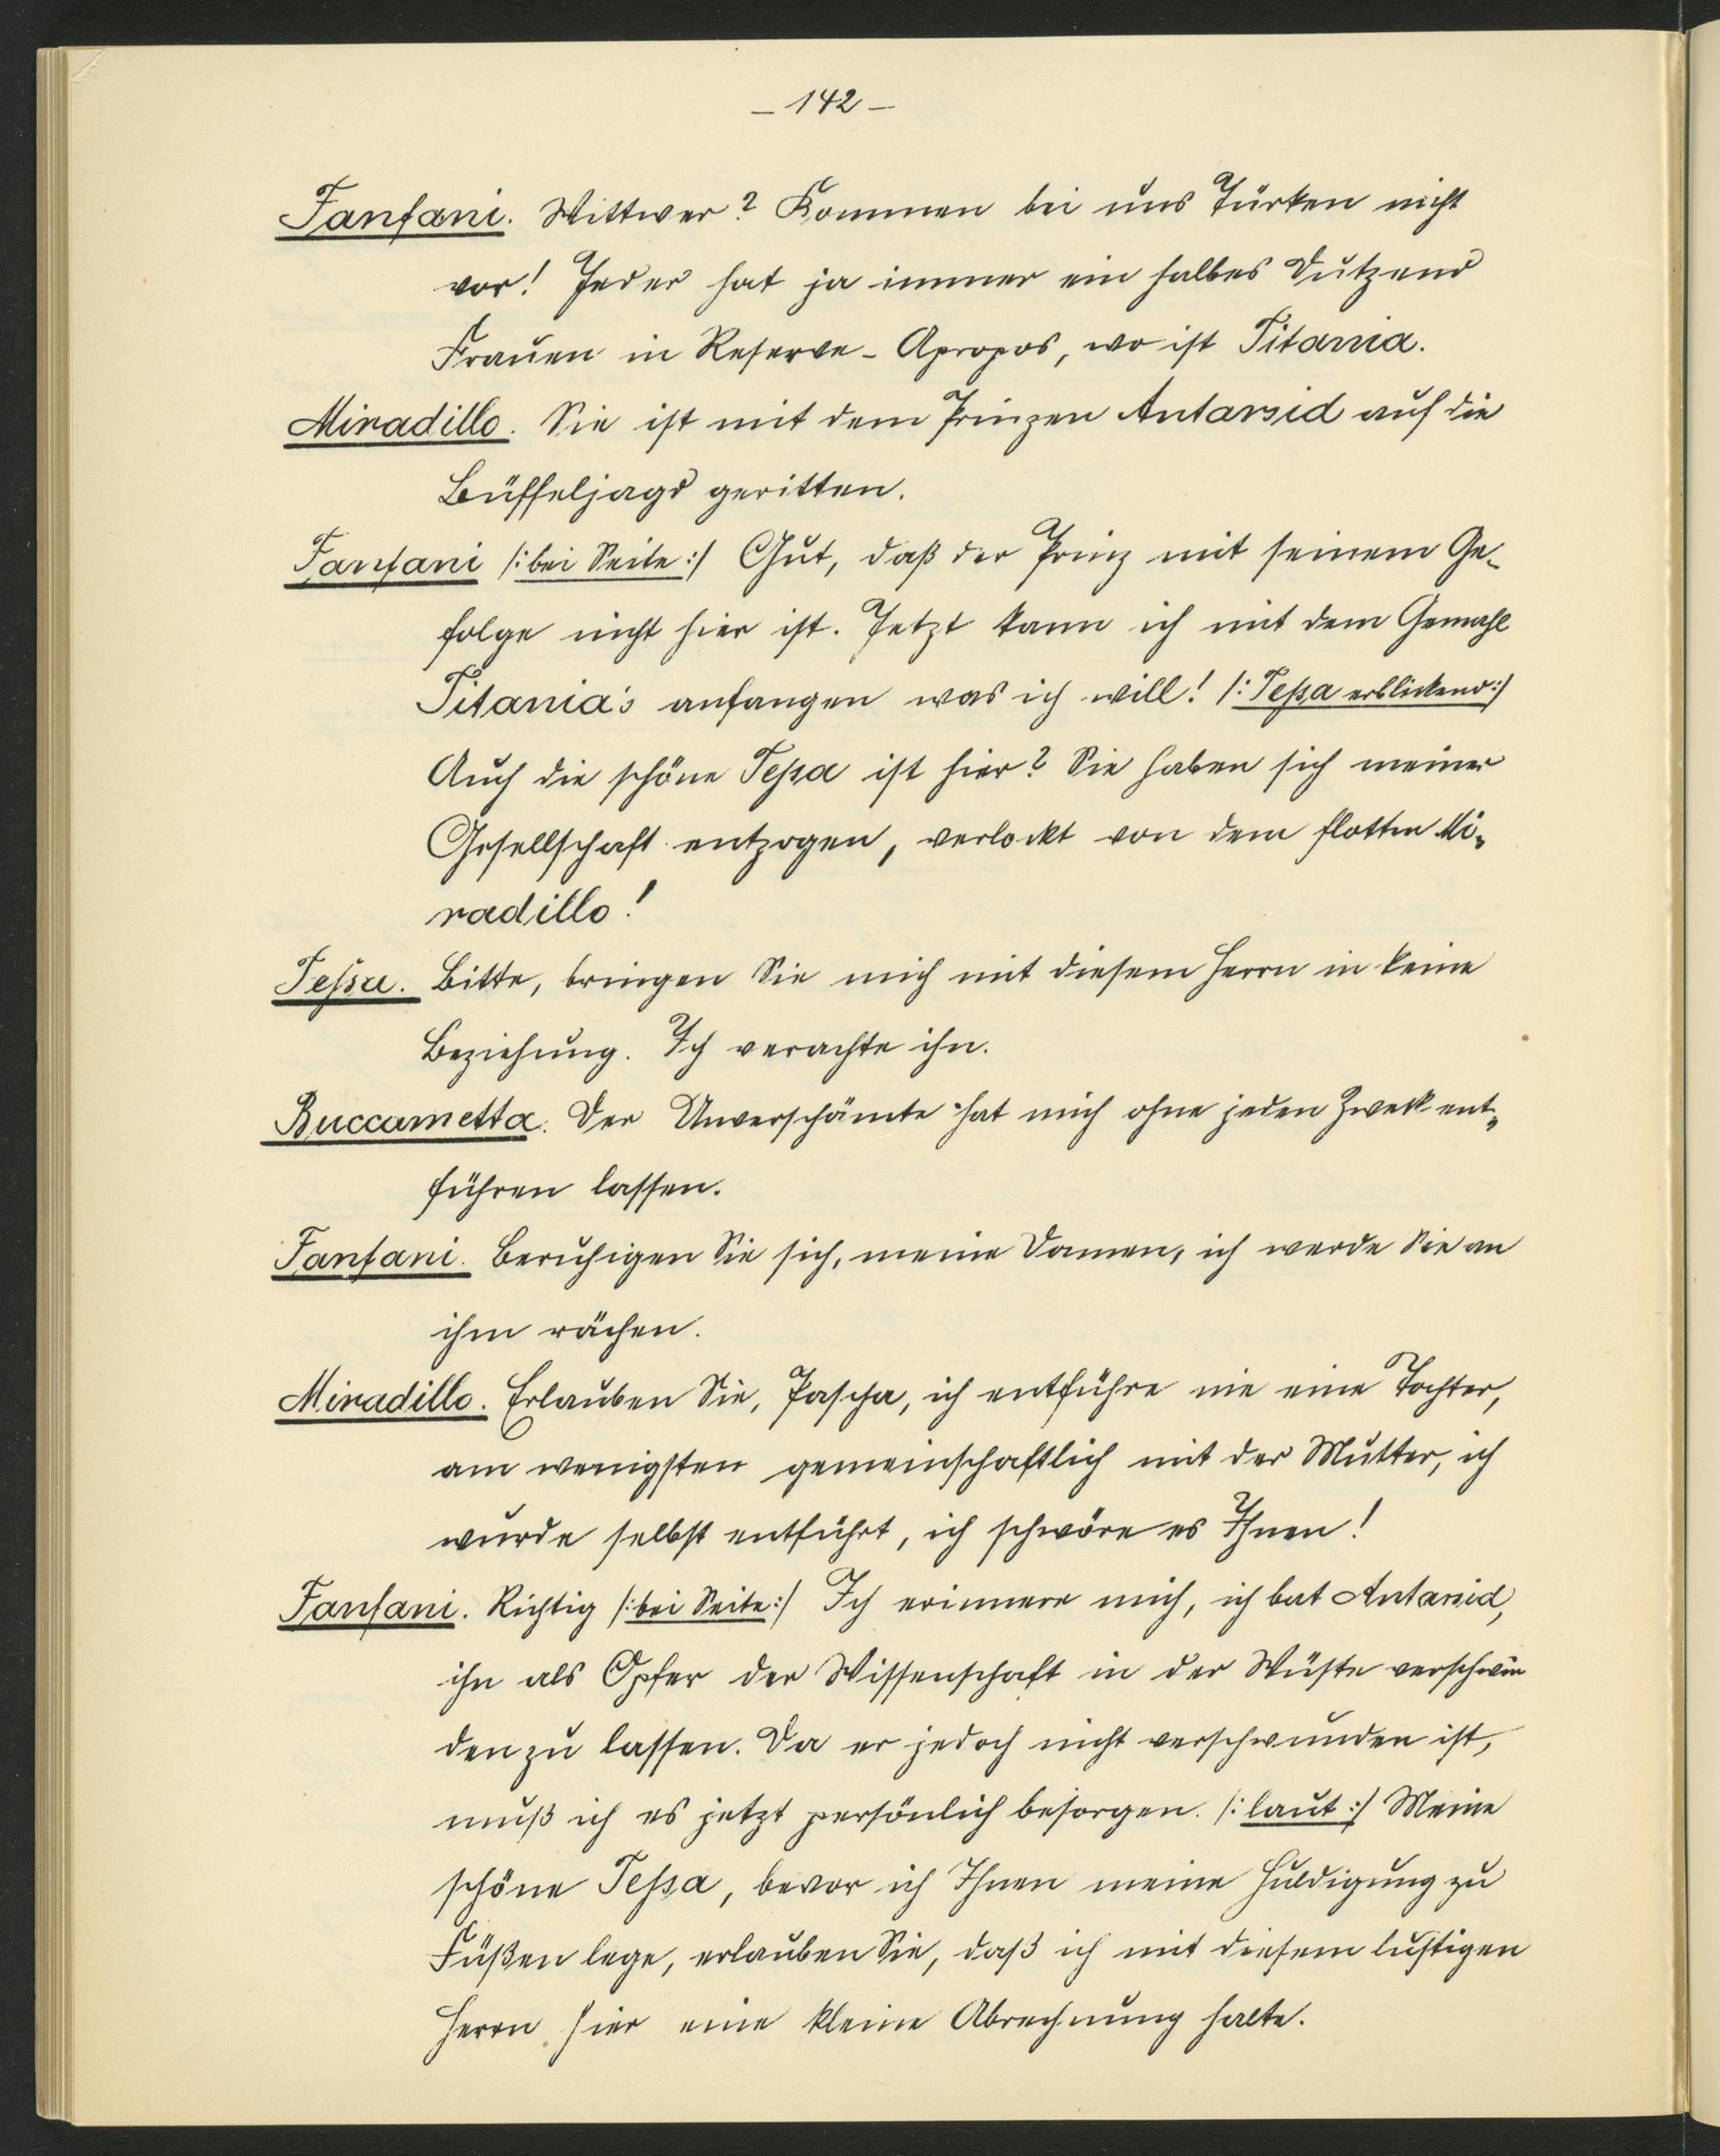 - 142 -
Fanfani. Wittwer? Kommen bei uns Türken nicht
vor! Jeder hat ja immer ein halbes Dutzend
Frauen in Reserve - Apropos, wo ist Titania.
Miradillo. Sie ist mit dem Prinzen Antarsid auf die
Büffeljagd geritten.
Fanfani /: bei Seite :/ Gut, daß der Prinz mit seinem Ge-
folge nicht hier ist. Jetzt kann ich mit dem Gemahl
Titania's anfangen was ich will! /: Teßa erblickend :/
Auch die schöne Teßa ist hier? Sie haben sich meiner
Gesellschaft entzogen, verlockt von dem flotten Mi-
radillo!
Teßa. Bitte, bringen Sie mich mit diesem Herrn in keine
Beziehung. Ich verachte ihn.
Buccametta. Der Unverschämte hat mich ohne jeden Zweck ent-
führen lassen.
Fanfani. Beruhigen Sie sich, meine Damen, ich werde Sie an
ihm rächen.
Miradillo. Erlauben Sie, Pascha, ich entführe nie eine Tochter,
am wenigsten gemeinschaftlich mit der Mutter, ich
wurde selbst entführt, ich schwöre es Ihnen!
Fanfani. Richtig /: bei Seite :/ Ich erinnere mich, ich bat Antarsid,
ihn als Opfer der Wissenschaft in der Wüste verschwin
den zu lassen. Da er jedoch nicht verschwunden ist,
muß ich es jetzt persönlich besorgen. /: laut :/ Meine
schöne Teßa, bevor ich Ihnen meine Huldigung zu
Füßen lege, erlauben Sie, daß ich mit diesem lustigen
Herrn hier eine kleine Abrechnung halte.